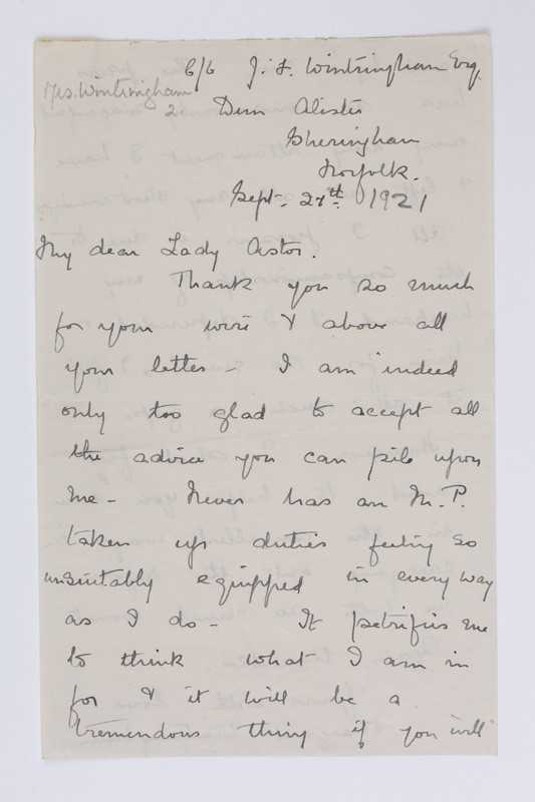 C/o J. F. Wintringham Esq.
Mrs. Wintringham
2 Dum Alister
Sheringham
Norfolk.
Sept. 27th 1921
My dear Lady Astor.
Thank you so much
for your wire & above all
your letter – I am indeed
only too glad to accept all
the advice you can pile upon
me – Never has an M.P.
taken up duties feeling so
unsuitably equipped in every way
as I do – It petrifies me
to think what I am in
for & it will be a
tremendous thing if you will